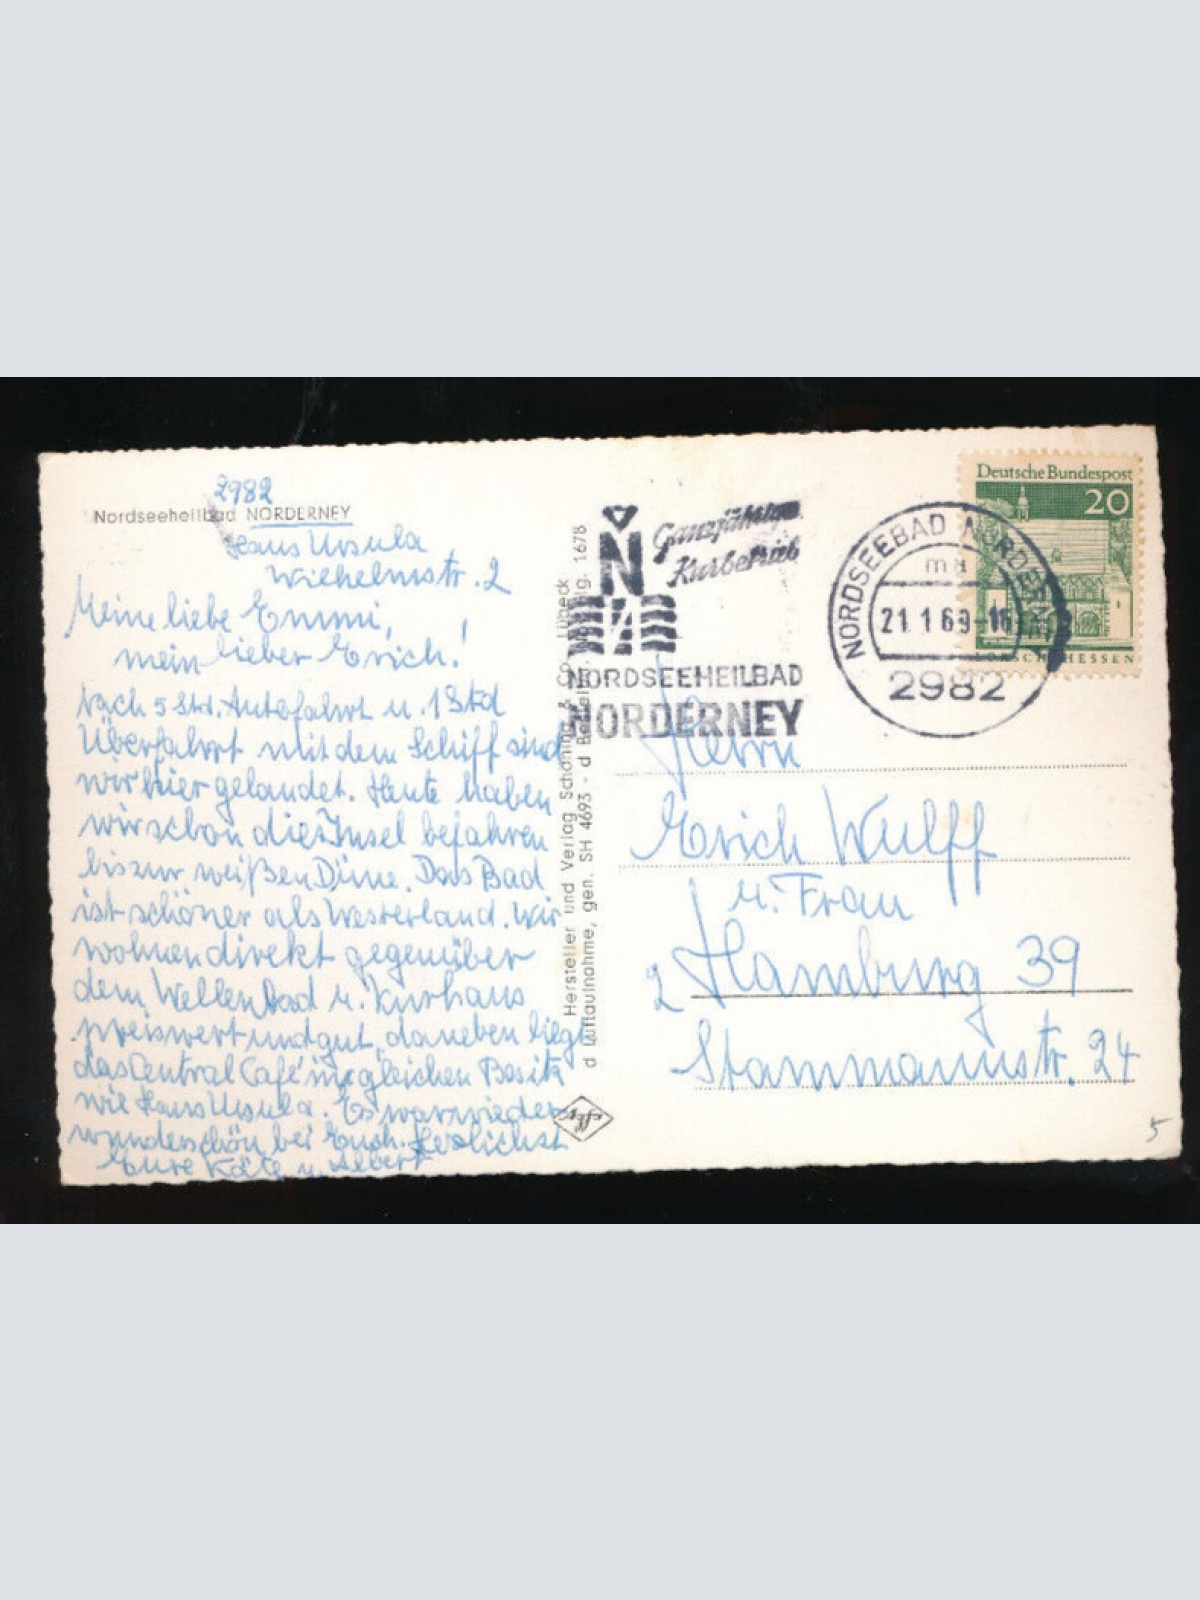 2982
Nordseeheilbad NORDERNEY
Haus Ursula
Wilhelmstr. 2
Meine liebe Emmi,
mein lieber Erich!
Nach 5 Std. Autofahrt u. 1 Std
Überfahrt mit dem Schiff sind
wir hier gelandet. Heute haben
wir schon die Insel befahren
bis zur weißen Düne. Das Bad
ist schöner als Westerland. Wir
wohnen direkt gegenüber
dem Wellenbad u. Kurhaus
preiswert und gut, daneben liegt
das Central Café im gleichen Besitz
wie Haus Ursula. Es war wieder
wunderschön bei Euch. Herzlichst
Eure Käte u. Albert
Hersteller und Verlag Schöning & Co., Lübeck
d Luftaufnahme, gen. SH 4693 - d 1678
Ganzjähriger
Kurbetrieb
N
NORDSEEHEILBAD
NORDERNEY
NORDSEEBAD NORDERNEY
ma
21.1.69-16
2982
Deutsche Bundespost
20
LORSCH/HESSEN
Herrn
Erich Wulff
u. Frau
2 Hamburg 39
Stammannstr. 24
5